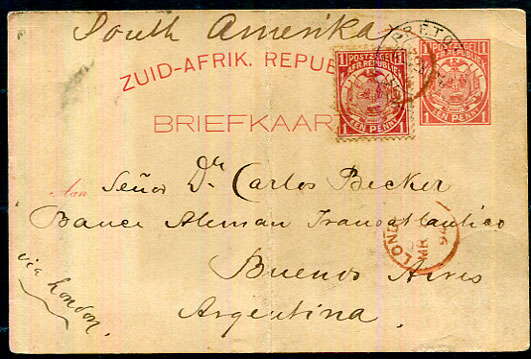 South Amerika
ZUID-AFRIK. REPUB
BRIEFKAAR
PRETO
1 POSTZEGEL 1
AFR. REPUBLIEK
1 EEN PENNY 1
1 1
1 EEN PENNY 1
Aan Señor Dr. Carlos Becker
Banco Aleman Transatlantico
LOND
MR
94
Buenos Aires
Argentina.
via London.